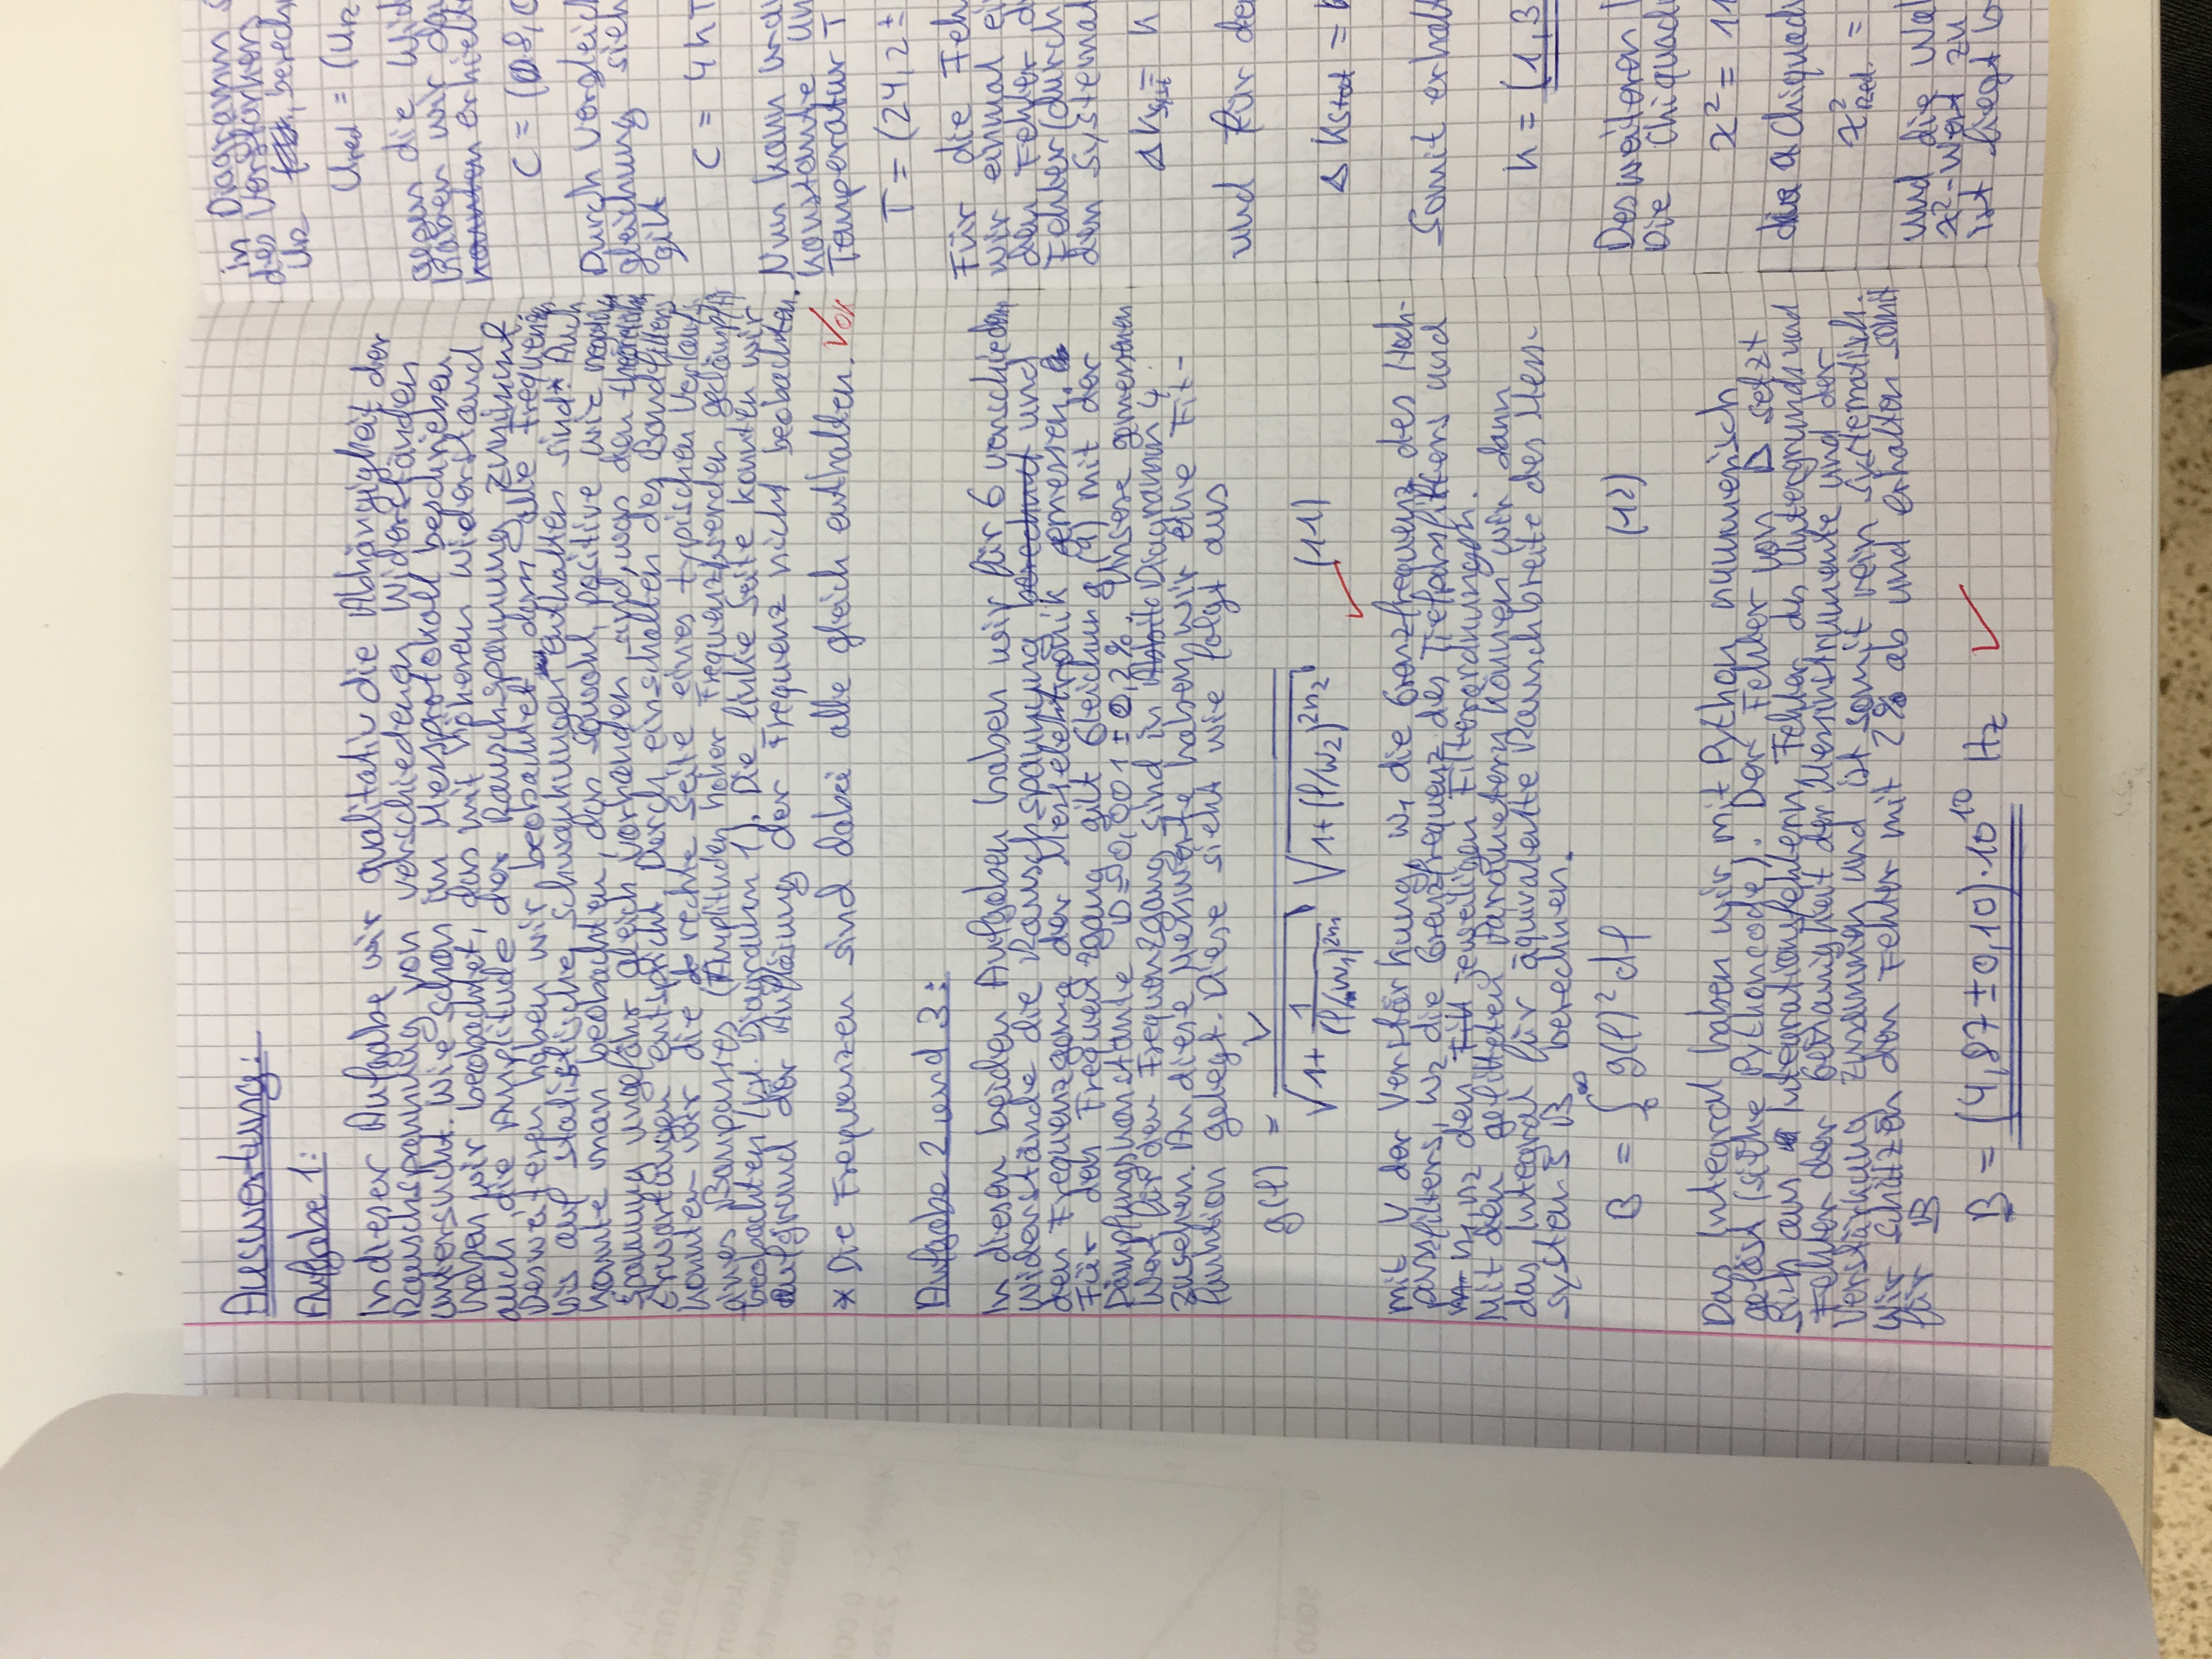 Auswertung:
Aufgabe 1:
In dieser Aufgabe wir qualitativ die Abhängigkeit der
Rauschspannung von verschiedenen Widerständen
untersucht. Wie schon im Messprotokoll beschrieben
haben wir beobachtet, das mit höherem Widerstand
auch die Amplitude der Rauschspannung zunimmt
Desweiteren haben wir beobachtet dass alle Frequenzen
bis auf statistische Schwankungen enthalten sind* Auch
konnte man beobachten, das sowohl positive wie negative
Spannung ungefähr gleich vorhanden sind, was den
Erwartungen entspricht. Durch einschalten des Bandfilters
konnten wir die rechte Seite eines typischen Verlaufs
eines Banpasses (Amplituden hoher Frequenz werden gedämpft)
beobachten (vgl. Diagramm 1). Die linke Seite konnten wir
aufgrund der Auflösung der Frequenz nicht beobachten.
* Die Frequenzen sind dabei alle gleich enthalten. Vor
Aufgabe 2 und 3:
In diesen beiden Aufgaben haben wir für 6 verschiedene
Widerstände die Rauschspannung berechnet und
den Frequenzgang der Messelektronik gemessen.
Für den Frequenzgang gilt Gleichung (9) mit der
Dämpfungskonstante D=0,001 ± 0,2%. Unsere gemessenen
Wert für den Frequenzgang sind in Diagramm 4
zusehen. An diese Messwerte haben wir eine Fit-
funktion gelegt. Diese sieht wie folgt aus
g(f) = V / √(1 + 1/(f/w₁)^{2n₁}) √(1+(f/w₂)^{2n₂}) (11)
mit V der Verstärkung, w₁ die Grenzfrequenz des Hoch-
passfilters, w₂ die Grenzfrequenz des Tiefpassfilters und
n₁, n₂ den jeweiligen Filterordnungen.
Mit den gefitteten Parametern können wir dann
das Integral für äquivalente Rauschbreite des Mess-
systems B berechnen.
B = ∫₀^∞ g(f)² df (12)
Das Integral haben wir mit Python nummerisch
gelöst (siehe Pythoncode). Der Fehler von B setzt
sich aus Integrationsfehlern, Fehler des Untergrunds und
Fehler der Genauigkeit der Messinstrumente und der
Verstärkung zusammen und ist somit rein systematisch.
Wir schätzen den Fehler mit 2% ab und erhalten somit
für B
B = (4,87 ± 0,10)·10¹⁰ Hz
in Diagramm
des Verstärkers
berech
U_red = (U_R
gegen die Wid
haben wir da
konnten erhielt
C = (
Durch Vergleich
gleichung sieh
gilt
C = 4kT
Nun kann
konstante un
Temperatur T
T = (24,2 ±
Für die Feh
wir einmal ei
den Fehler d
Fehler (durch
den Systemat
Δk_syst = k
und für de
Δk_stat = k
Somit erhalt
k = (1,3
Desweiteren
Die Chiquad
χ² = 11
Chiquad
χ²_red. =
und die Wa
χ²-Wert zu
ist liegt b